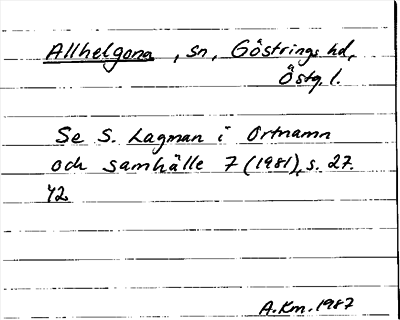 Allhelgona, sn, Göstrings hd,
Östg. l.
Se S. Lagman i Ortnamn
och samhälle 7 (1981), s. 27.
42
A.Km. 1987